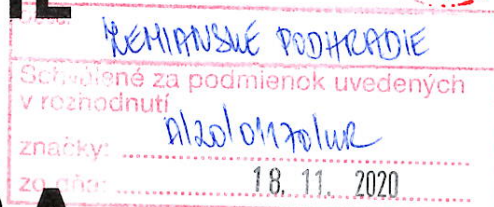 ZEMIANSKE PODHRADIE
Schválené za podmienok uvedených
v rozhodnutí
značky: A/20/01170/WR
zo dňa: 18. 11. 2020